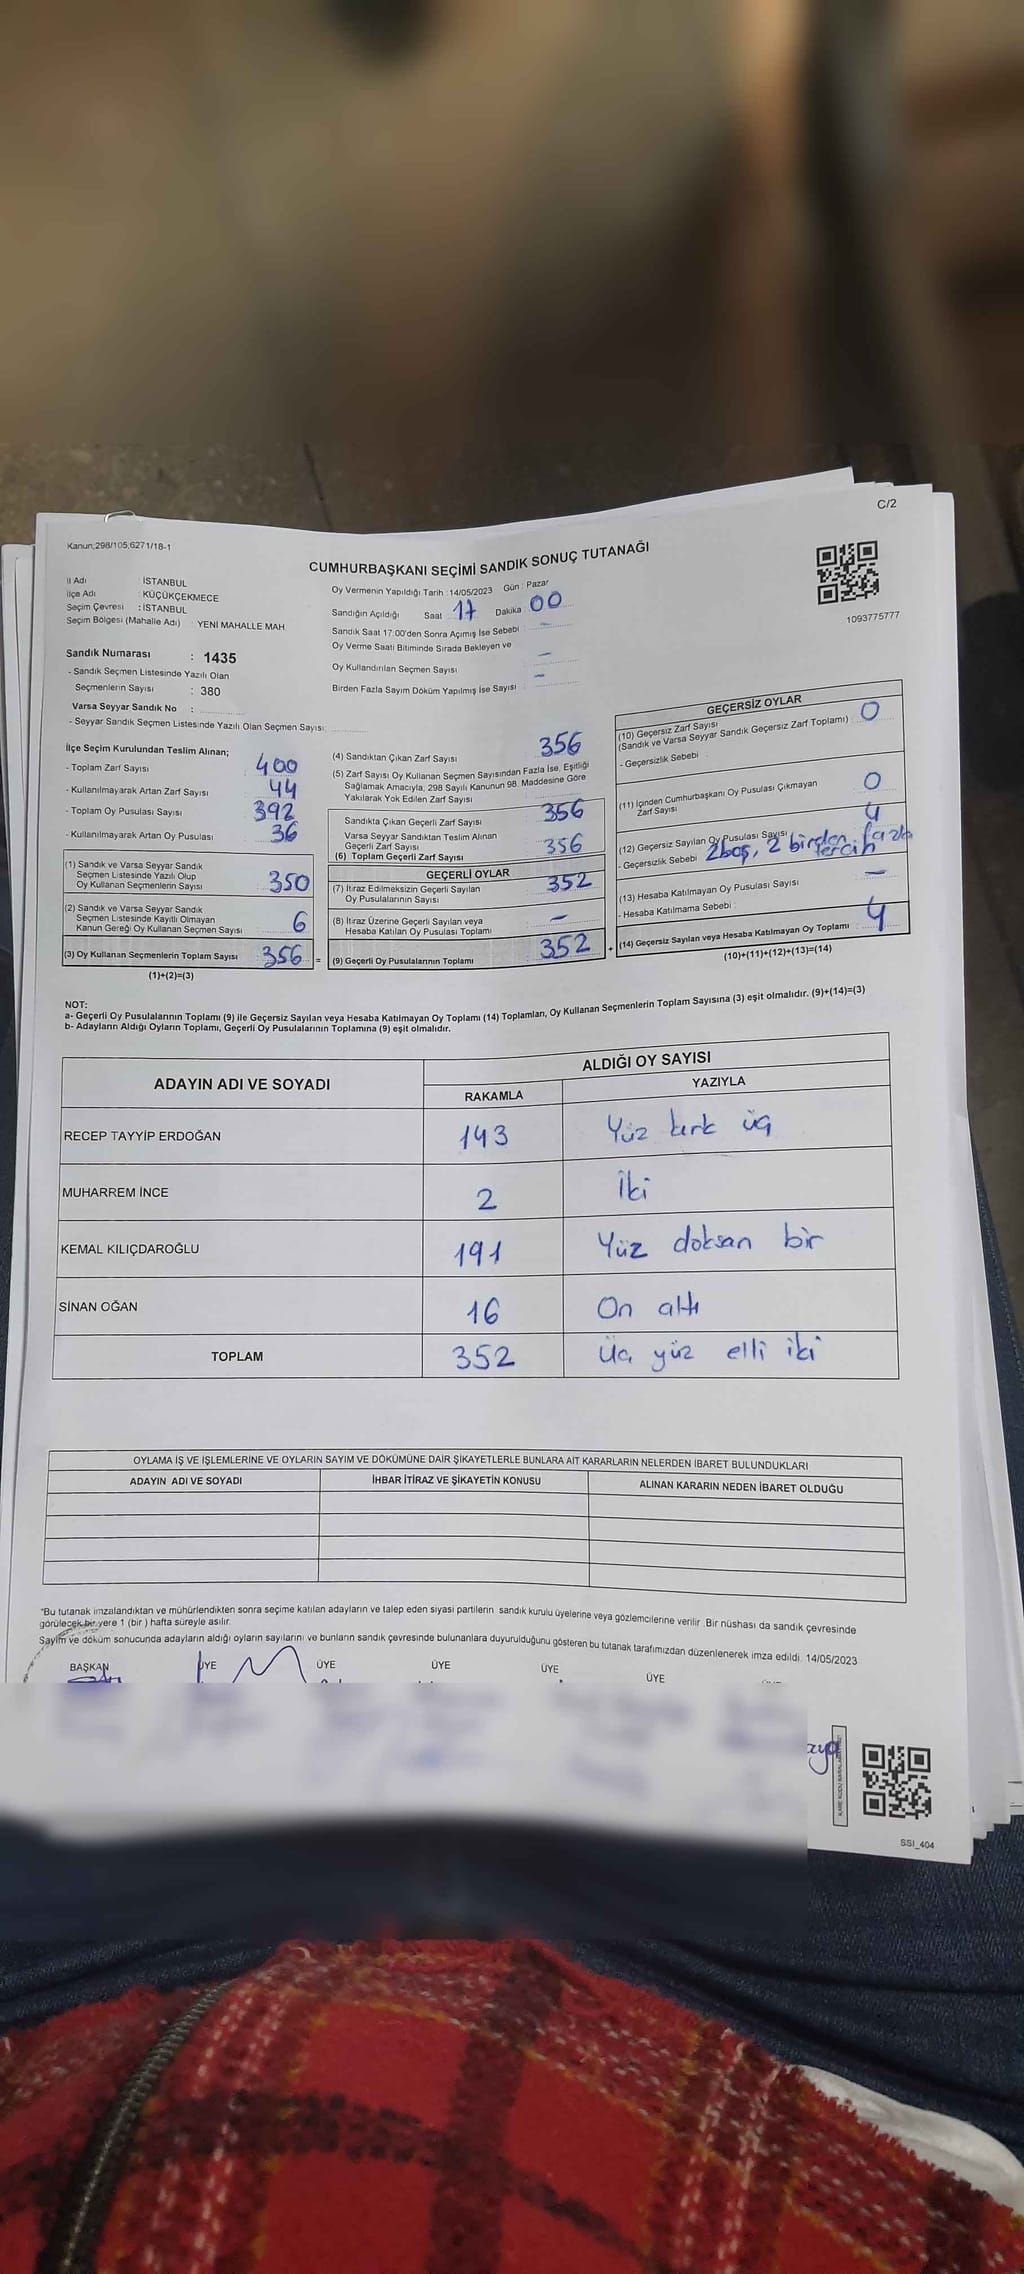 C/2
Kanun;298/105;6271/18-1
CUMHURBAŞKANI SEÇİMİ SANDIK SONUÇ TUTANAĞI
İl Adı : İSTANBUL
İlçe Adı : KÜÇÜKÇEKMECE
Seçim Çevresi : İSTANBUL
Seçim Bölgesi (Mahalle Adı) : YENİ MAHALLE MAH
Sandık Numarası : 1435
- Sandık Seçmen Listesinde Yazılı Olan
Seçmenlerin Sayısı : 380
Varsa Seyyar Sandık No :
- Seyyar Sandık Seçmen Listesinde Yazılı Olan Seçmen Sayısı:
Oy Vermenin Yapıldığı Tarih : 14/05/2023 Gün : Pazar
Sandığın Açıldığı Saat 17 Dakika : 00
Sandık Saat 17.00'den Sonra Açımış İse Sebebi : -
Oy Verme Saati Bitiminde Sırada Bekleyen ve
Oy Kullandırılan Seçmen Sayısı -
Birden Fazla Sayım Döküm Yapılmış İse Sayısı : -
1093775777
İlçe Seçim Kurulundan Teslim Alınan;
- Toplam Zarf Sayısı 400
- Kullanılmayarak Artan Zarf Sayısı : 44
- Toplam Oy Pusulası Sayısı 392
- Kullanılmayarak Artan Oy Pusulası : 36
(1) Sandık ve Varsa Seyyar Sandık
Seçmen Listesinde Yazılı Olup
Oy Kullanan Seçmenlerin Sayısı 350
(2) Sandık ve Varsa Seyyar Sandık
Seçmen Listesinde Kayıtlı Olmayan
Kanun Gereği Oy Kullanan Seçmen Sayısı 6
(3) Oy Kullanan Seçmenlerin Toplam Sayısı 356 =
(1)+(2)=(3)
(4) Sandıktan Çıkan Zarf Sayısı 356
(5) Zarf Sayısı Oy Kullanan Seçmen Sayısından Fazla İse, Eşitliği
Sağlamak Amacıyla, 298 Sayılı Kanunun 98. Maddesine Göre
Yakılarak Yok Edilen Zarf Sayısı
Sandıkta Çıkan Geçerli Zarf Sayısı : 356
Varsa Seyyar Sandıktan Teslim Alınan
Geçerli Zarf Sayısı
(6) Toplam Geçerli Zarf Sayısı 356
GEÇERLİ OYLAR
(7) İtiraz Edilmeksizin Geçerli Sayılan
Oy Pusulalarının Sayısı 352
(8) İtiraz Üzerine Geçerli Sayılan veya
Hesaba Katılan Oy Pusulası Toplamı -
(9) Geçerli Oy Pusulalarının Toplamı 352 +
GEÇERSİZ OYLAR
(10) Geçersiz Zarf Sayısı
(Sandık ve Varsa Seyyar Sandık Geçersiz Zarf Toplamı) : 0
- Geçersizlik Sebebi :
(11) İçinden Cumhurbaşkanı Oy Pusulası Çıkmayan
Zarf Sayısı 0
(12) Geçersiz Sayılan Oy Pusulası Sayısı 4
- Geçersizlik Sebebi 2 boş, 2 birden fazla
tercih
(13) Hesaba Katılmayan Oy Pusulası Sayısı -
- Hesaba Katılmama Sebebi :
(14) Geçersiz Sayılan veya Hesaba Katılmayan Oy Toplamı : 4
(10)+(11)+(12)+(13)=(14)
NOT:
a- Geçerli Oy Pusulalarının Toplamı (9) ile Geçersiz Sayılan veya Hesaba Katılmayan Oy Toplamı (14) Toplamları, Oy Kullanan Seçmenlerin Toplam Sayısına (3) eşit olmalıdır. (9)+(14)=(3)
b- Adayların Aldığı Oyların Toplamı, Geçerli Oy Pusulalarının Toplamına (9) eşit olmalıdır.
ADAYIN ADI VE SOYADI ALDIĞI OY SAYISI
RAKAMLA YAZIYLA
RECEP TAYYİP ERDOĞAN 143 Yüz kırk üç
MUHARREM İNCE 2 İki
KEMAL KILIÇDAROĞLU 191 Yüz doksan bir
SİNAN OĞAN 16 On altı
TOPLAM 352 Üç yüz elli iki
OYLAMA İŞ VE İŞLEMLERİNE VE OYLARIN SAYIM VE DÖKÜMÜNE DAİR ŞİKAYETLERLE BUNLARA AİT KARARLARIN NELERDEN İBARET BULUNDUKLARI
ADAYIN ADI VE SOYADI İHBAR İTİRAZ VE ŞİKAYETİN KONUSU ALINAN KARARIN NEDEN İBARET OLDUĞU
*Bu tutanak imzalandıktan ve mühürlendikten sonra seçime katılan adayların ve talep eden siyasi partilerin sandık kurulu üyelerine veya gözlemcilerine verilir. Bir nüshası da sandık çevresinde
görülecek bir yere 1 (bir) hafta süreyle asılır.
Sayım ve döküm sonucunda adayların aldığı oyların sayılarını ve bunların sandık çevresinde bulunanlara duyurulduğunu gösteren bu tutanak tarafımızdan düzenlenerek imza edildi. 14/05/2023
BAŞKAN ÜYE ÜYE ÜYE ÜYE ÜYE
SSI_404